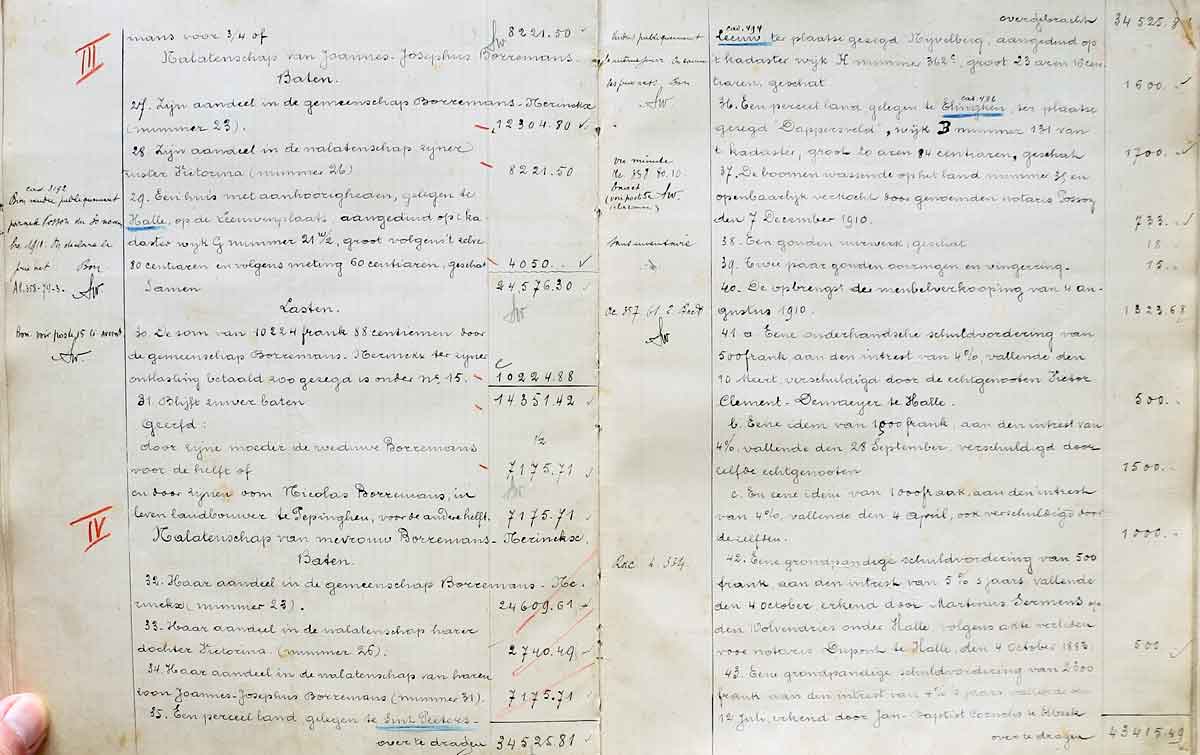 III
mans voor 3/4 of 8221.50
Nalatenschap van Joannes-Josephus Borremans-
Baten.
27. Zijn aandeel in de gemeenschap Borremans-Nerinckx
(nummer 23). 12304.80
28. Zijn aandeel in de nalatenschap zijner
zuster Victorina (nummer 26) 8221.50
29. Een huis met aanhoorigheden, gelegen te
Halle, op de Leeuwplaats, aangeduid op 't ka
daster wijk G nummer 21 w/2, groot volgens 't zelve
80 centiaren en volgens meting 60 centiaren, geschat 4050..
Samen 24576.30
Lasten.
30. De som van 10224 frank 88 centiemen door
de gemeenschap Borremans-Nerinckx ter zijner
ontlasting betaald zoo gezegd is onder n° 15. 10224.88
31. Blijft zuiver baten 14351.42
Geerfd:
door zijne moeder de weduwe Borremans 1/2
voor de helft of 7175.71
en door zijnen oom Nicolas Borremans, in
leven landbouwer te Pepinghen, voor de andere helft. 7175.71
IV
Nalatenschap van mevrouw Borremans-Nerinckx.
Baten.
32. Haar aandeel in de gemeenschap Borremans-Ne-
rinckx (nummer 23). 24609.61
33. Haar aandeel in de nalatenschap harer
dochter Victorina. (nummer 26). 2740.49
34. Haar aandeel in de nalatenschap van haren
zoon Joannes-Josephus Borremans (nummer 31). 7175.71
35. Een perceel land gelegen te Sint Peeters-
over te dragen 34525.81
cad. 3192
Bon
Bon voir poste 15 ci avant
overgebracht 34525.81
cad. 494
Leeuw, ter plaatse gezegd Nijvelberg, aangeduid op
't kadaster wijk H nummer 362c, groot 23 aren 10 cen
tiaren, geschat 1600.-
cad. 486
36. Een perceel land gelegen te Elinghen, ter plaatse
gezegd "Dappersveld", wijk B nummer 131 van
't kadaster, groot 20 aren 84 centiaren, geschat 1700.-
37. De boomen wassende op het land nummer 35 en
openbaarlijk verkocht door genoemden notaris Possoz
den 7 December 1910. 733.-
38. Een gouden uurwerk, geschat 18
39. Twee paar gouden oorringen en vingerring. 15.-
40. De opbrengst der meubelverkooping van 4 au-
gustus 1910. 1323.68
41. a Eene onderhandsche schuldvordering van
500 frank aan den intrest van 4%, vallende den
10 Meert, verschuldigd door de echtgenooten Victor
Clement-Demaeyer te Halle. 500.-
b. Eene idem van 1500 frank, aan den intrest van
4%, vallende den 28 September, verschuldigd door
zelfde echtgenooten 1500.-
c. En eene idem van 1000 frank, aan den intrest
van 4%, vallende den 4 April, ook verschuldigd door
dezelfden. 1000.-
42. Eene grondpandige schuldvordering van 500
frank, aan den intrest van 5% 's jaars vallende
den 4 October, erkend door Martinus Germens op
den Wolvendries onder Halle, volgens akte verleden
voor notaris Dupont te Halle, den 4 October 1883. 500
43. Eene grondpandige schuldvordering van 2300
frank aan den intrest van 4% 's jaars vallende den
12 Juli, erkend door Jan-Baptist Cornelis te Elbeek
over te dragen 43415.49
Sans inventaire